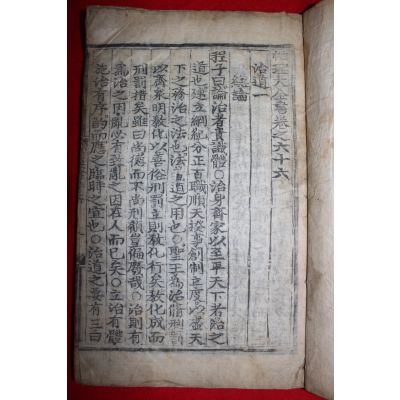 性理大全書卷之六十六
治道一
總論
程子曰論治者貴識體○治身齊家以至平天下者治之
道也建立綱紀分正百職順天揆事創制立度以盡天
下之務治之法也法者道之用也○聖王為治脩刑罰
以齊衆明敎化以善俗刑罰立則敎化行矣敎化成而
刑罰措矣雖曰尚德而不尚刑顧豈偏廢哉○治則有
為治之因亂必有致亂之因在人而已矣○立治有體
施治有序酌而應之臨時之宜也○治道之要有三曰